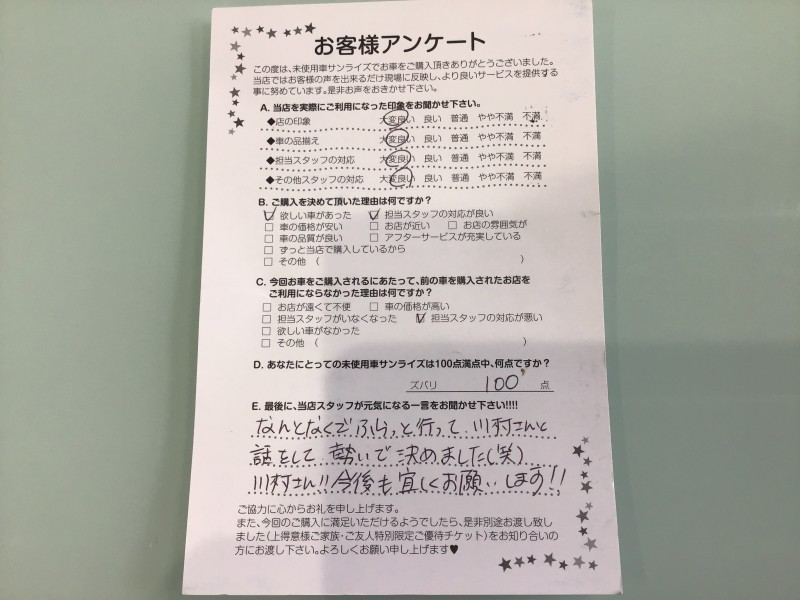 お客様アンケート
この度は、未使用車サンライズでお車をご購入頂きありがとうございました。
当店ではお客様の声を出来るだけ現場に反映し、より良いサービスを提供する
事に努めています。是非お声をおきかせ下さい。
A. 当店を実際にご利用になった印象をお聞かせ下さい。
◆店の印象 大変良い 良い 普通 やや不満 不満
◆車の品揃え 大変良い 良い 普通 やや不満 不満
◆担当スタッフの対応 大変良い 良い 普通 やや不満 不満
◆その他スタッフの対応 大変良い 良い 普通 やや不満 不満
B. ご購入を決めて頂いた理由は何ですか?
☑ 欲しい車があった ☑ 担当スタッフの対応が良い
□ 車の価格が安い □ お店が近い □ お店の雰囲気が
□ 車の品質が良い □ アフターサービスが充実している
□ ずっと当店で購入しているから
□ その他 ( )
C. 今回お車をご購入されるにあたって、前の車を購入されたお店を
ご利用にならなかった理由は何ですか?
□ お店が遠くて不便 □ 車の価格が高い
□ 担当スタッフがいなくなった ☑ 担当スタッフの対応が悪い
□ 欲しい車がなかった
□ その他 ( )
D. あなたにとっての未使用車サンライズは100点満点中、何点ですか?
ズバリ 100 点
E. 最後に、当店スタッフが元気になる一言をお聞かせ下さい!!!!
なんとなくでふらっと行って川村さんと
話をして勢いで決めました(笑)
川村さん!!今後も宜しくお願いします!!
ご協力に心からお礼を申し上げます。
また、今回のご購入に満足いただけるようでしたら、是非別途お渡し致し
ました(上得意様ご家族・ご友人特別限定ご優待チケット)をお知り合いの
方にお渡し下さい。よろしくお願い申し上げます♥